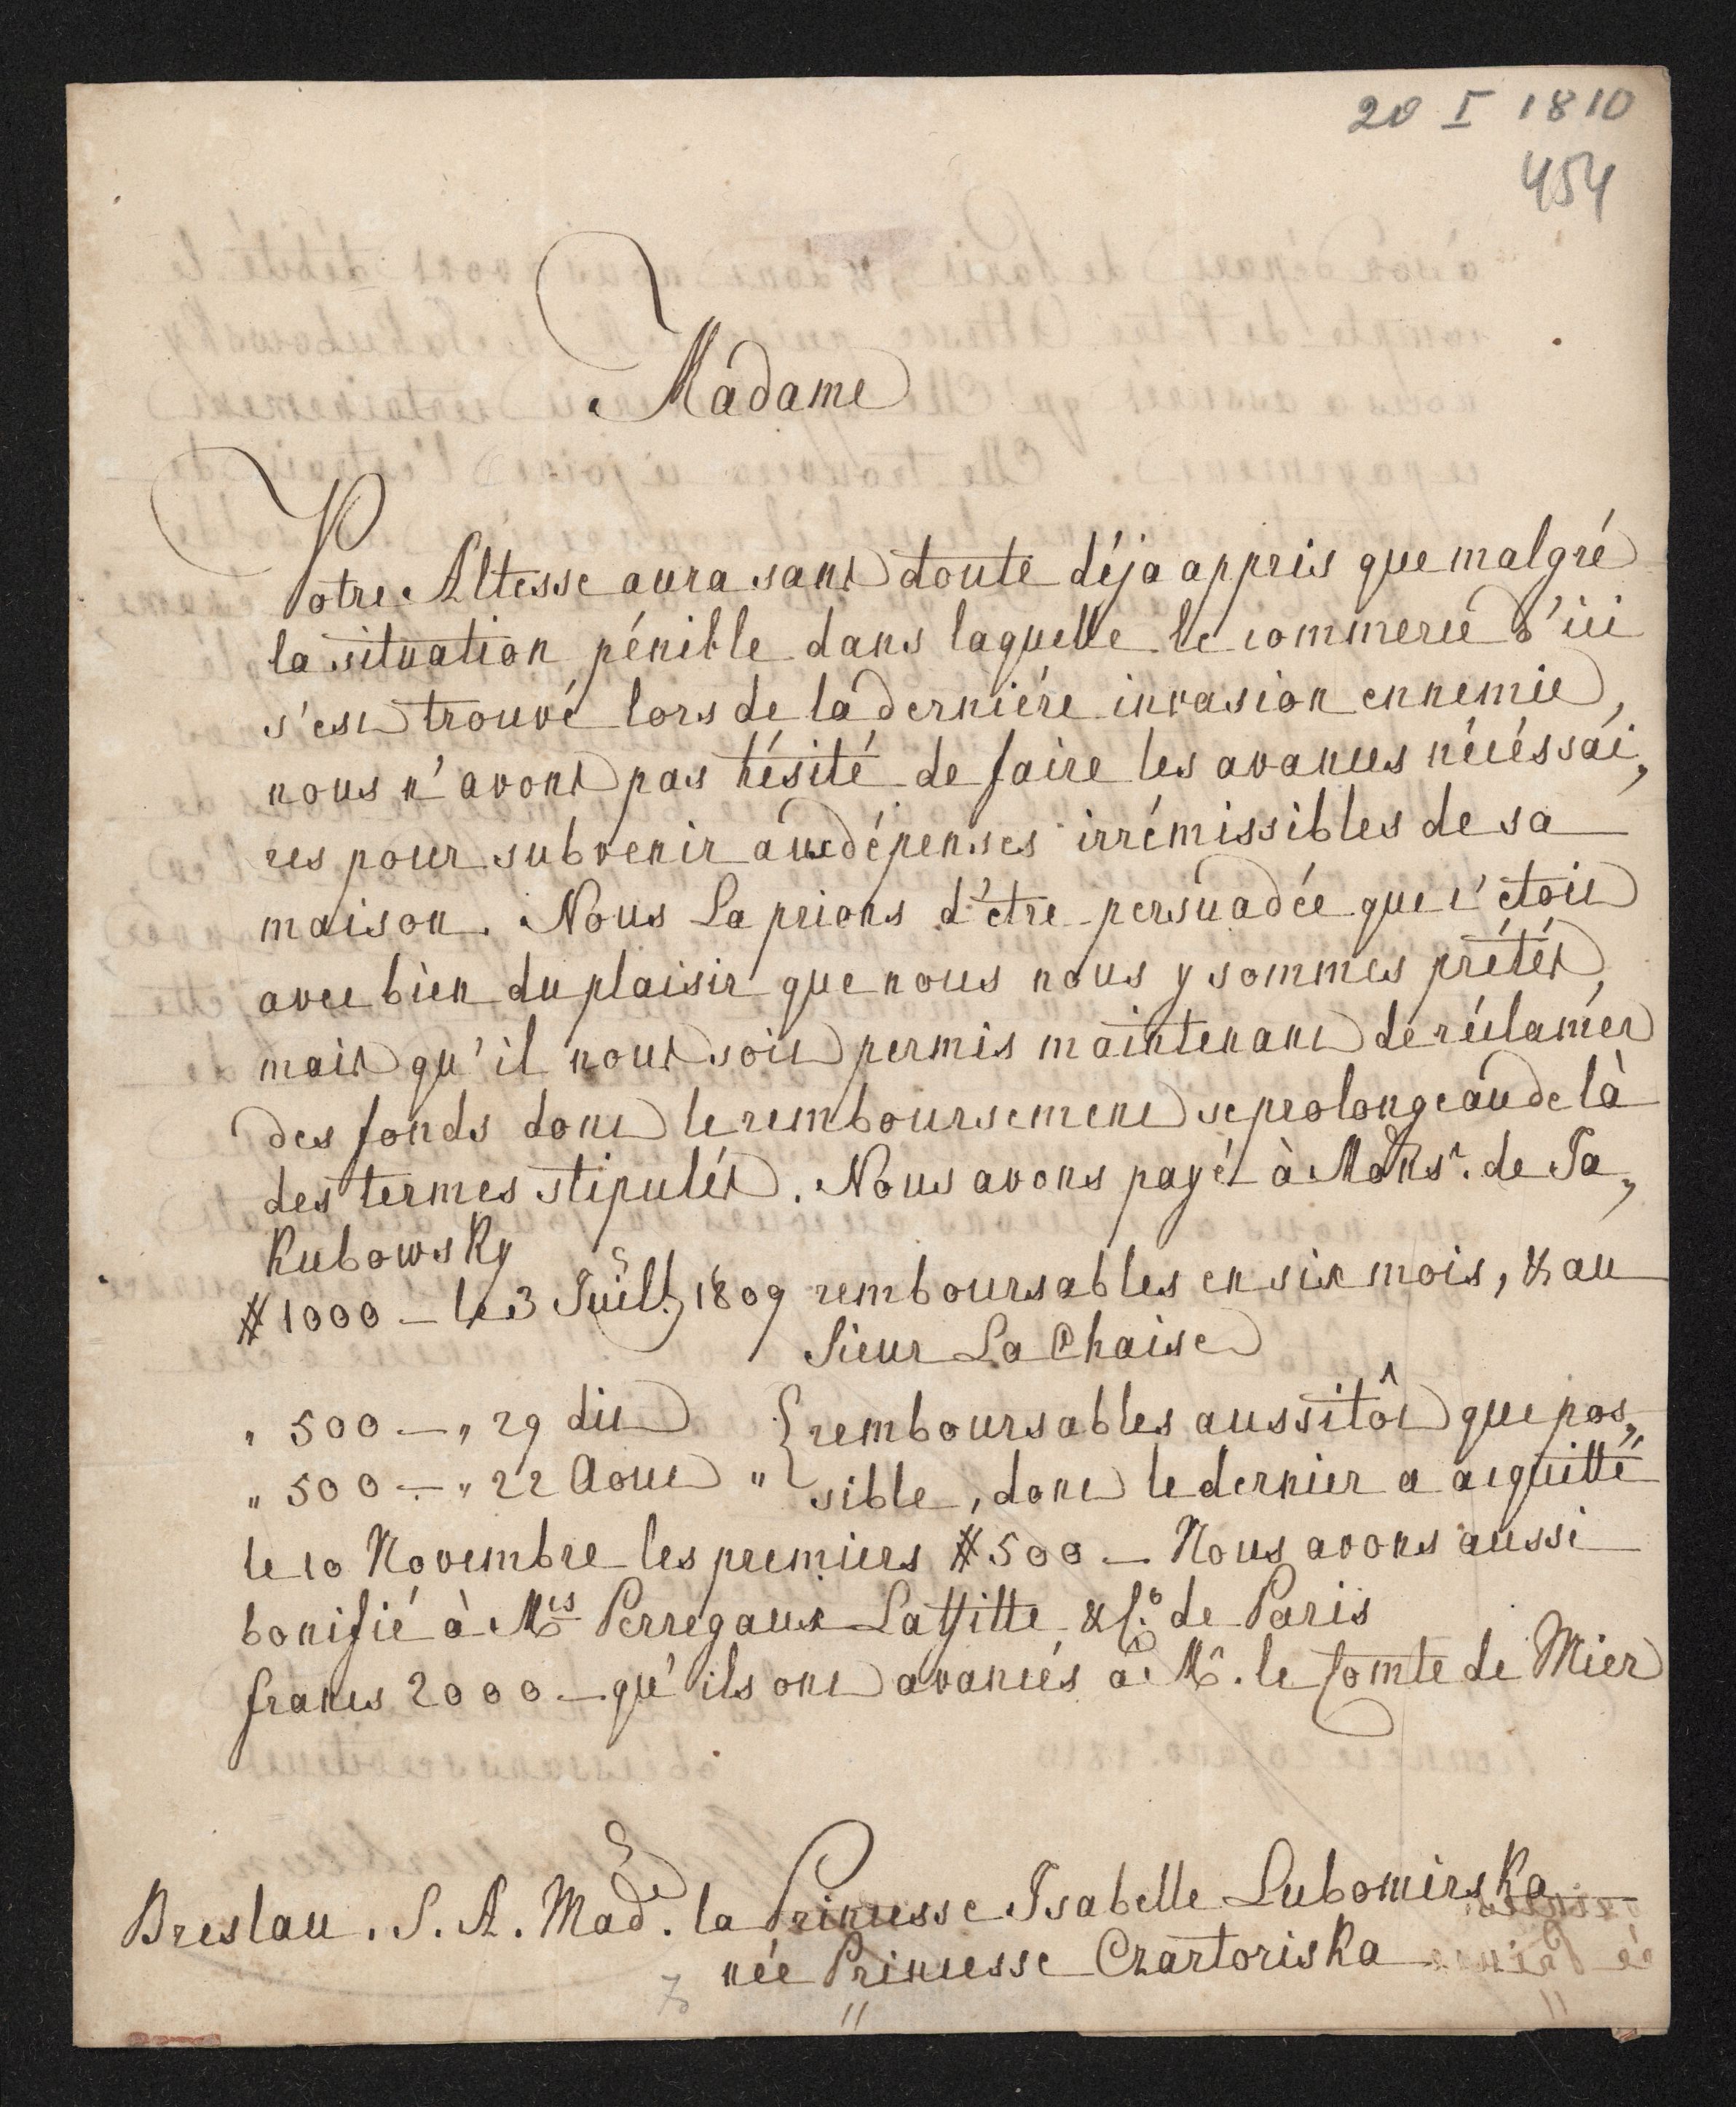 20 I 1810
454
Madame
Votre Altesse aura sans doute déja appris que malgré
la situation pénible dans laquelle le commerce d'ici
s'est trouvé lors de la derniére invasion ennemie,
nous n'avons pas hésité de faire les avances nécéssai„
res pour subvenir aux dépenses irrémissibles de sa
maison. Nous La prions d'être persuadée que c'étoit
avec bien du plaisir que nous nous y sommes prétés,
mais qu'il nous soit permis maintenant de réclamer
des fonds dont le remboursement se prolonge au de là
des termes stipulés. Nous avons payé à Monsr. de Ja„
Kubowsky
# 1000 – le 3 Juillt 1809 remboursables en six mois, & au
Sieur La Chaise
„ 500 – „ 29 dit { remboursables aussitôt que pos„
„ 500 – „ 22 Aout „ { sible, dont le dernier a acquitté
le 10 Novembre les premiers # 500 – Nous avons aussi
bonifié à Mrs Perregaux Laffitte & Co de Paris
francs 2000 – qu'ils ont avancés à Mr. le Comte de Mier
Breslau. S. A. Made. la Princesse Isabelle Lubomirska
née Princesse Czartoriska